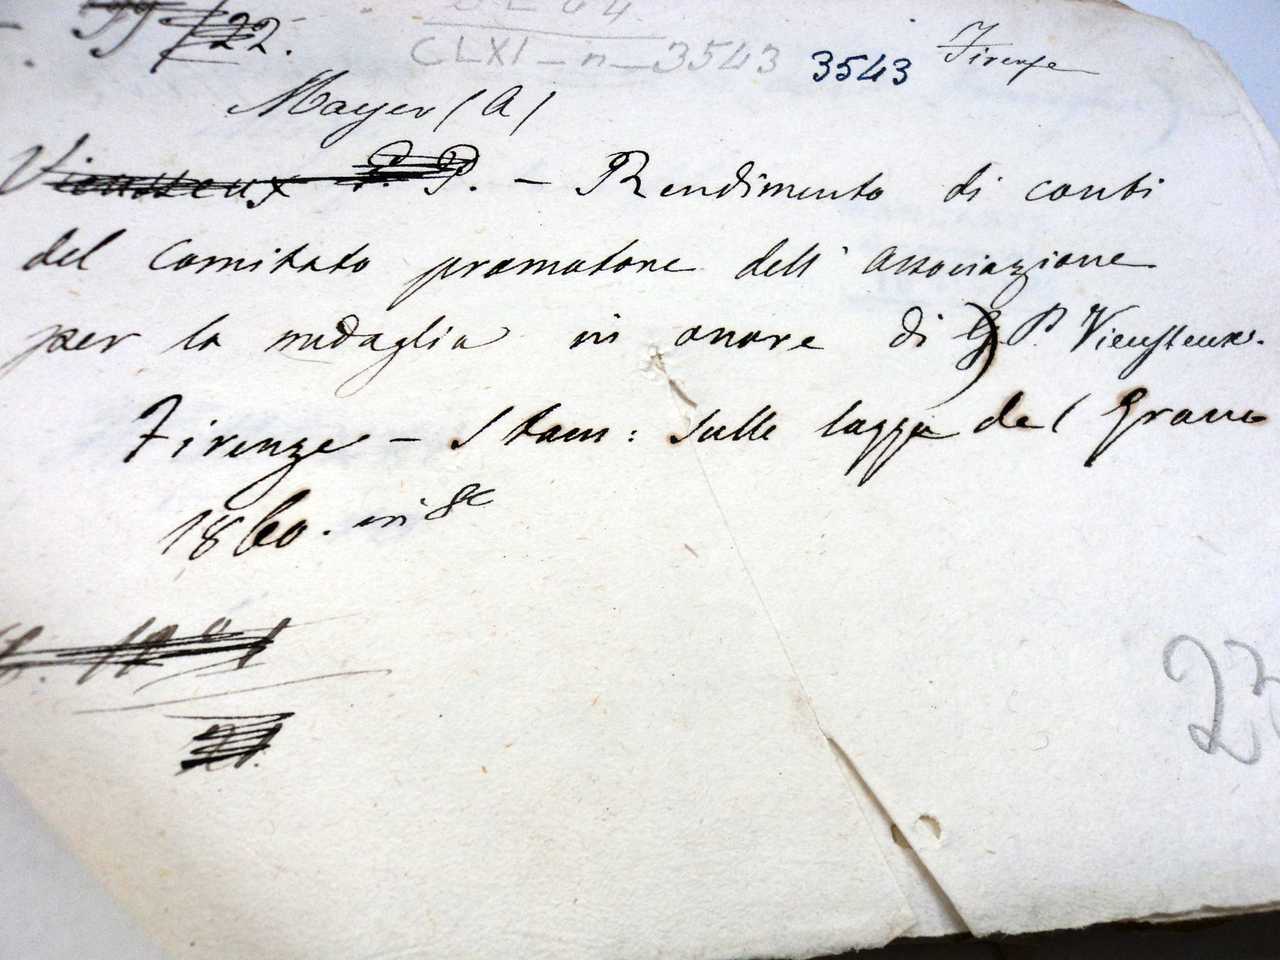 22.
CLXI - n - 3543 3543 Firenze
Mayer (A)
Vieusseux P. P. - Rendimento di conti
del Comitato promotore dell' Associazione
per la medaglia in onore di G P. Vieusseux.
Firenze - Stam: sulle logge del Grano
1860. in 8°
23